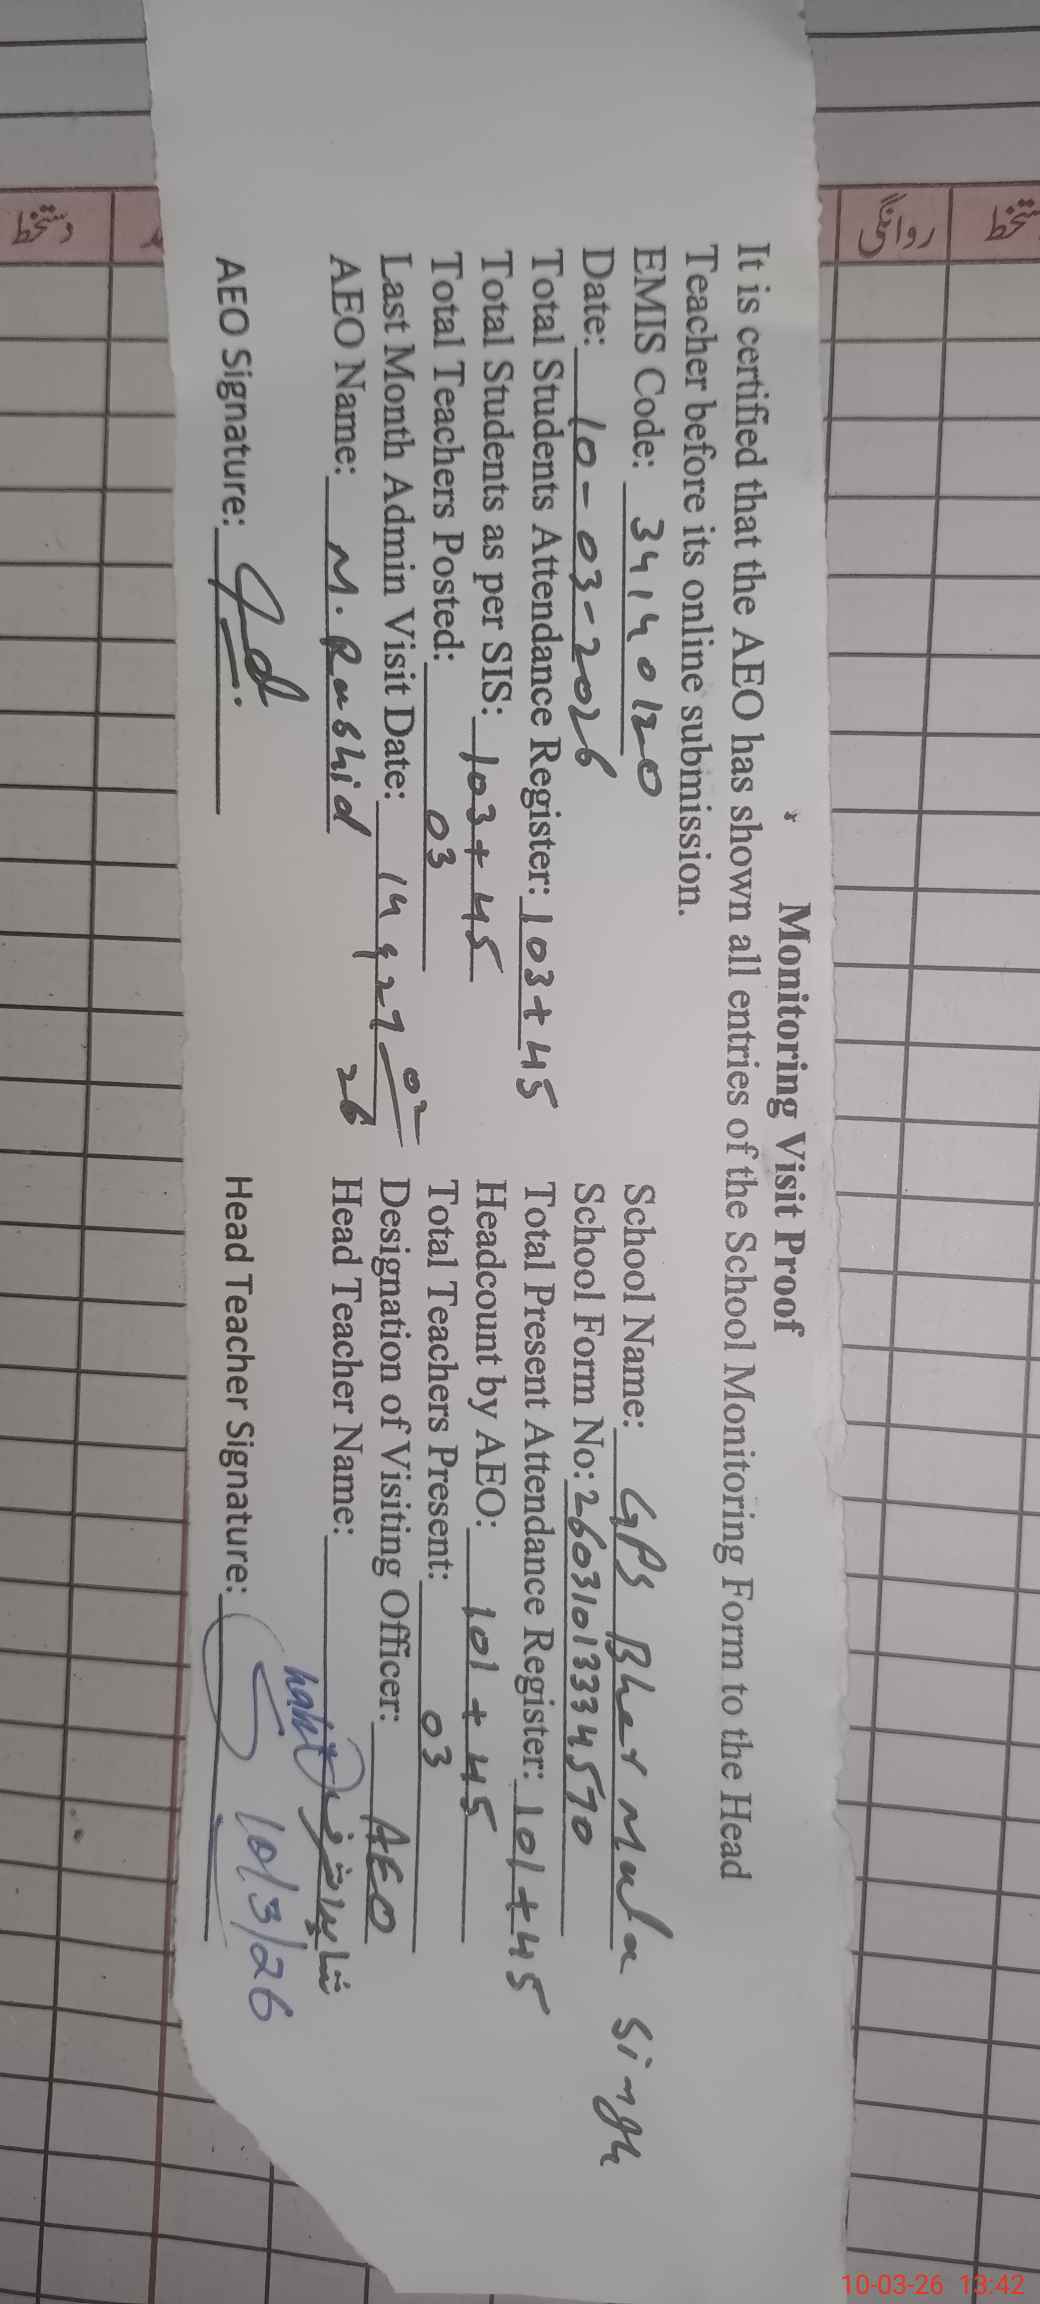 Monitoring Visit Proof
It is certified that the AEO has shown all entries of the School Monitoring Form to the Head
Teacher before its online submission.
EMIS Code: 34140120 School Name: GPS Bher Mula Singh
Date: 10-03-2026 School Form No: 26031013334570
Total Students Attendance Register: 103+45 Total Present Attendance Register: 101+45
Total Students as per SIS: 103+45 Headcount by AEO: 101+45
Total Teachers Posted: 03 Total Teachers Present: 03
Last Month Admin Visit Date: 14 & 27 02 26 Designation of Visiting Officer: AEO
AEO Name: M. Rashid Head Teacher Name:
AEO Signature: Head Teacher Signature: 10/3/26
10-03-26 13:42